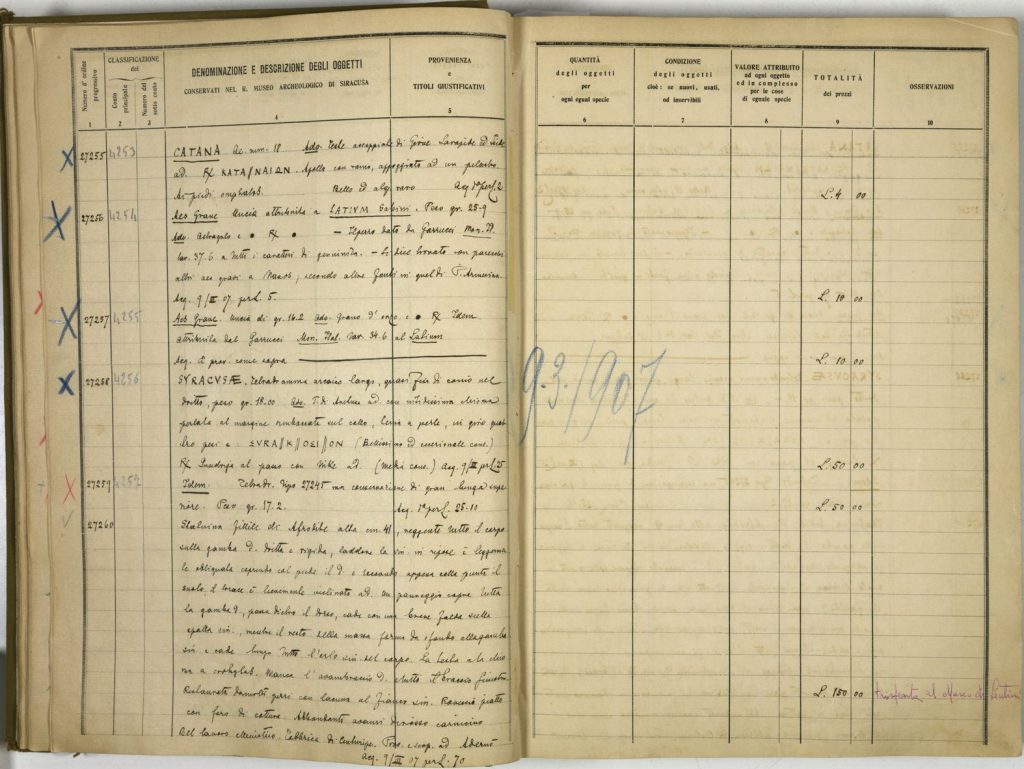 Numero d'ordine progressivo
CLASSIFICAZIONE
del
Costo principale
Numero del sotto conto
DENOMINAZIONE E DESCRIZIONE DEGLI OGGETTI
CONSERVATI NEL R. MUSEO ARCHEOLOGICO DI SIRACUSA
PROVENIENZA
e
TITOLI GIUSTIFICATIVI
1 2 3 4 5
27255 4253 CATANA Ae. num. 18. Adv. Teste accoppiate di Giove Serapide ed Iside
ad. R) KATA/NAIΩN. Apollo con ramo, appoggiato ad un pilastro.
Ai piedi omphalos. Bello ed alq. raro Acq. 1ª per L. 2
27256 4254 Aes Grave Uncia attribuita a LATIUM Sabini. Peso gr. 25-9
Adv. Astragalo e • R) • — dato da Garrucci Mon. It.
tav. 37.6 à tutti i caratteri di genuinità. — Si dice trovato con parecchi
altri aes gravi a Naxos; secondo altre fonti in quel di P. Armerina.
Acq. 9/III 07 per L. 5.
27257 4255 Aes Grave. Uncia di gr. 16.2 Adv. Grano d'orzo e • R) Idem
attribuita dal Garrucci Mon. Ital. tav. 34.6 al Latium
Acq. e prov. come sopra
27258 4256 SYRACUSÆ. Tetradramma arcaico largo, quasi fior di conio nel
dritto, peso gr. 18.00 Adv. T. di Arethusa ad. con nitidissima chioma
portata al margine rimboccata sul collo, tenia a perle, in giro quat
tro pesci e ΣVRA/K/OΣI/ON (Bellissimo ed eccezionale cons.)
R) Quadriga al passo con Nike ad. (Media cons.) Acq. 9/III per L. 25
27259 4257 Idem. Tetradr. tipo 27245 ma conservazione di gran lunga supe
riore. Peso gr. 17.2. Acq. 1ª per L. 25-10
27260 Statuina fittile di Afrodite alta cm. 41, reggente tutto il corpo
sulla gamba d. dritta e rigida, laddove la sin. in riposo è leggerm.
te obliquata coprendo col piede il d. e toccando appena colla punta il
suolo. Il torace è lievemente inclinato ad. Un panneggio copre tutta
la gamba d., passa dietro il dorso, cade con una breve falda sulla
spalla sin., mentre il resto della massa
sin. e cade lungo tutto l'orlo sin. del corpo. La testa
Manca l'avambraccio d. e tutto il braccio sinistro.
Restaurata da molti pezzi con lacuna al fianco sin. Rovescio piatto
con foro di cottura. Abbondanti avanzi di rosso carnicino
Fabbrica di Centuripe. ad Adernò
Acq. 9/III 07 per L. 70
QUANTITÀ
degli oggetti
per
ogni egual specie
CONDIZIONE
degli oggetti
cioè: se nuovi, usati,
od inservibili
VALORE ATTRIBUITO
ad ogni oggetto
ed in complesso
per le cose
di eguale specie
TOTALITÀ
dei prezzi
OSSERVAZIONI
6 7 8 9 10
L. 4 00
L. 10 00
L. 10 00
9.3./907
L. 50 00
L. 50 00
L. 150 00 trasferita al Museo di Lentini